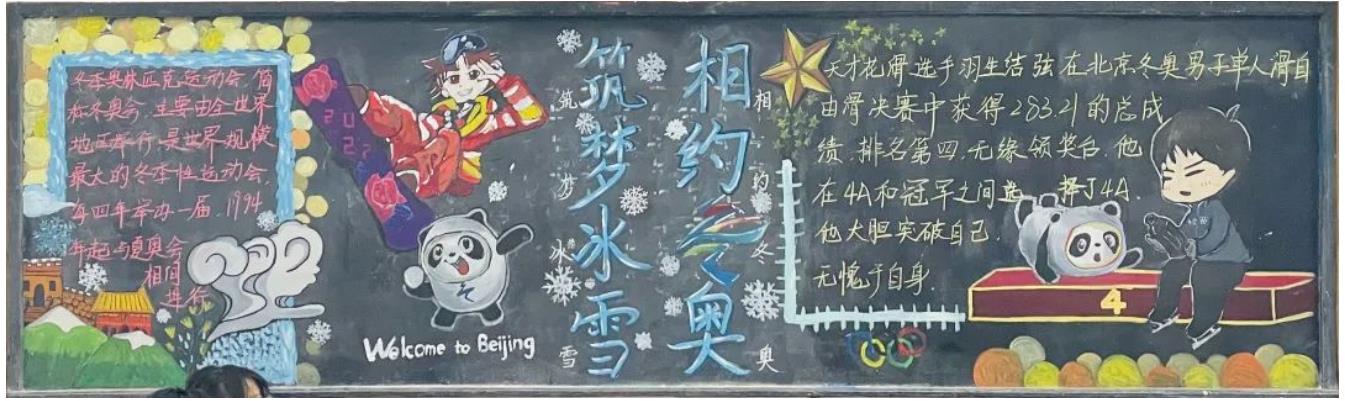 冬季奥林匹克运动会 简
称冬奥会. 主要由全世界
地区举行 是世界规模
最大的冬季性运动会.
每四年举办一届. 1994
年起 与夏奥会
相间
进行
2022
Welcome to Beijing
筑梦冰雪
筑梦冰雪
相约冬奥
相约冬奥
天才花滑选手羽生结弦在北京冬奥男子单人滑自
由滑决赛中获得283.21的总成
绩.排名第四.无缘领奖台.他
在4A和冠军之间选 择了4A.
他大胆突破自己.
无愧于自身.
4